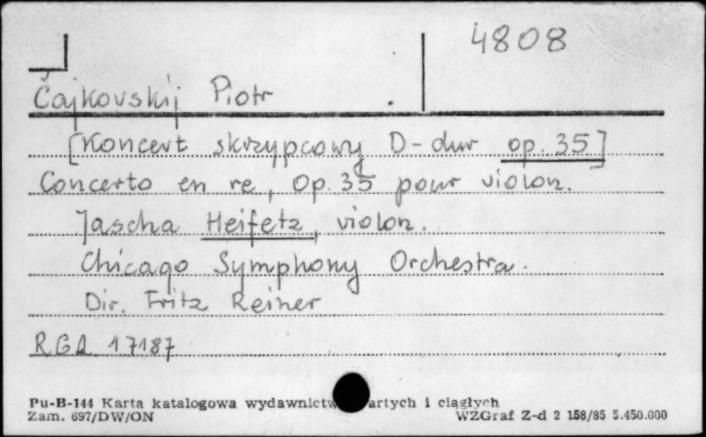 4808
Čajkovskij Piotr
[Koncert skrzypcowy D-dur op. 35]
Concerto en re, Op. 35 pour violon.
Jascha Heifetz, violon.
Chicago Symphony Orchestra.
Dir. Fritz Reiner
RGA 17187
Pu-B-144 Karta katalogowa wydawnictw artych i ciągłych
Zam. 697/DW/ON WZGraf Z-d 2 158/85 5.450.000